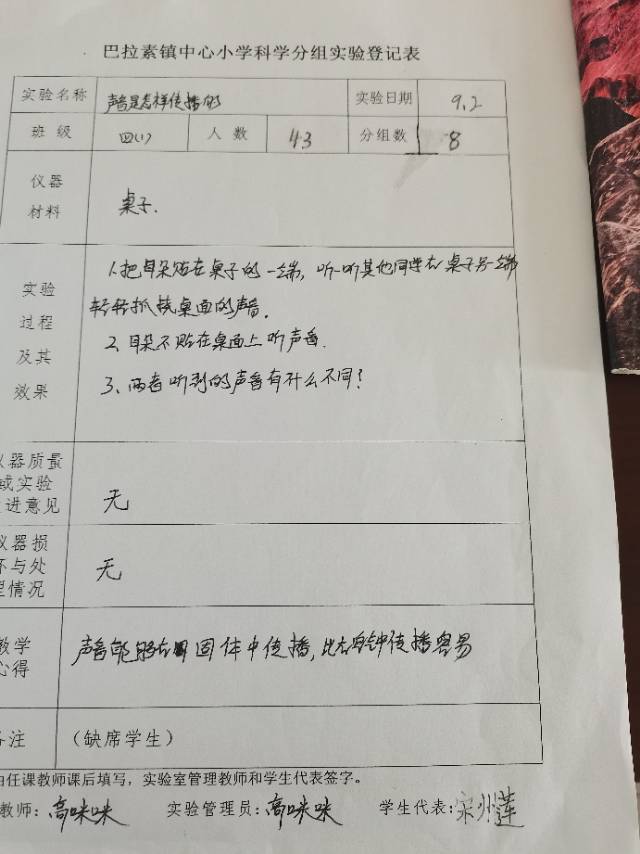 巴拉素镇中心小学科学分组实验登记表
实验名称 声音是怎样传播的 实验日期 9.2
班 级 四(1) 人 数 43 分组数 8
仪器
材料
桌子.
实验
过程
及其
效果
1.把耳朵贴在桌子的一端,听一听其他同学在桌子另一端
轻轻抓挠桌面的声音.
2、耳朵不贴在桌面上听声音.
3、两者听到的声音有什么不同?
仪器质量
或实验
改进意见
无
仪器损
坏与处
理情况
无
教学
心得
声音能够在固体中传播,比在空气中传播容易
备注 (缺席学生)
由任课教师课后填写,实验室管理教师和学生代表签字。
教师:高咪咪 实验管理员:高咪咪 学生代表:宋州莲